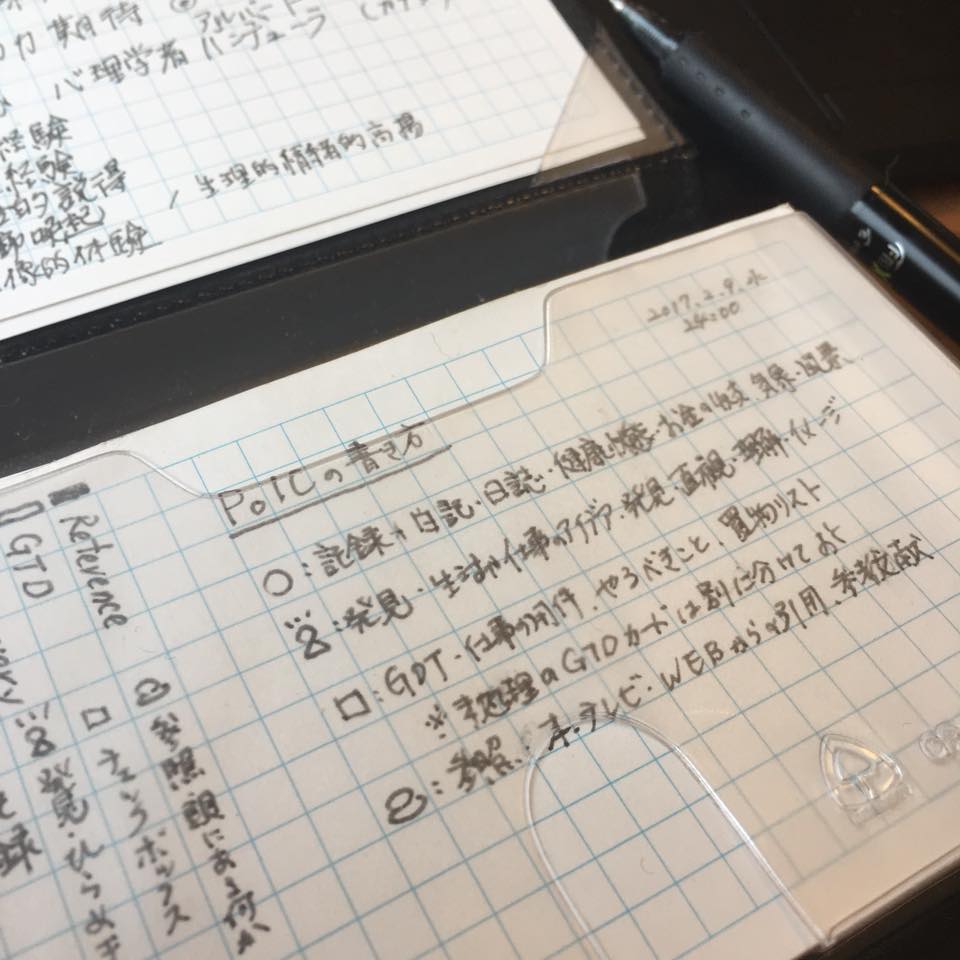 期待
アルバート
心理学者 バンデューラ
経験
経験
的説得
/ 生理的情緒的高揚
喚起
的体験
2017.2.9.水
24:00
PoICの書き方
○:記録・日記・日誌・健康状態・お金の収支 気象・風景、
:発見・生活や仕事のアイデア・発見・直視・理解・イメージ
□:GDT・仕事の用件、やるべきこと、買物リスト
※ 未処理のGTDカードは別に分けておく
:参照、本・テレビ・WEBからの引用、参考文献
Reference
参照・頭にある何か
GTD
□ チェックボックス
発見・ひらめき
録